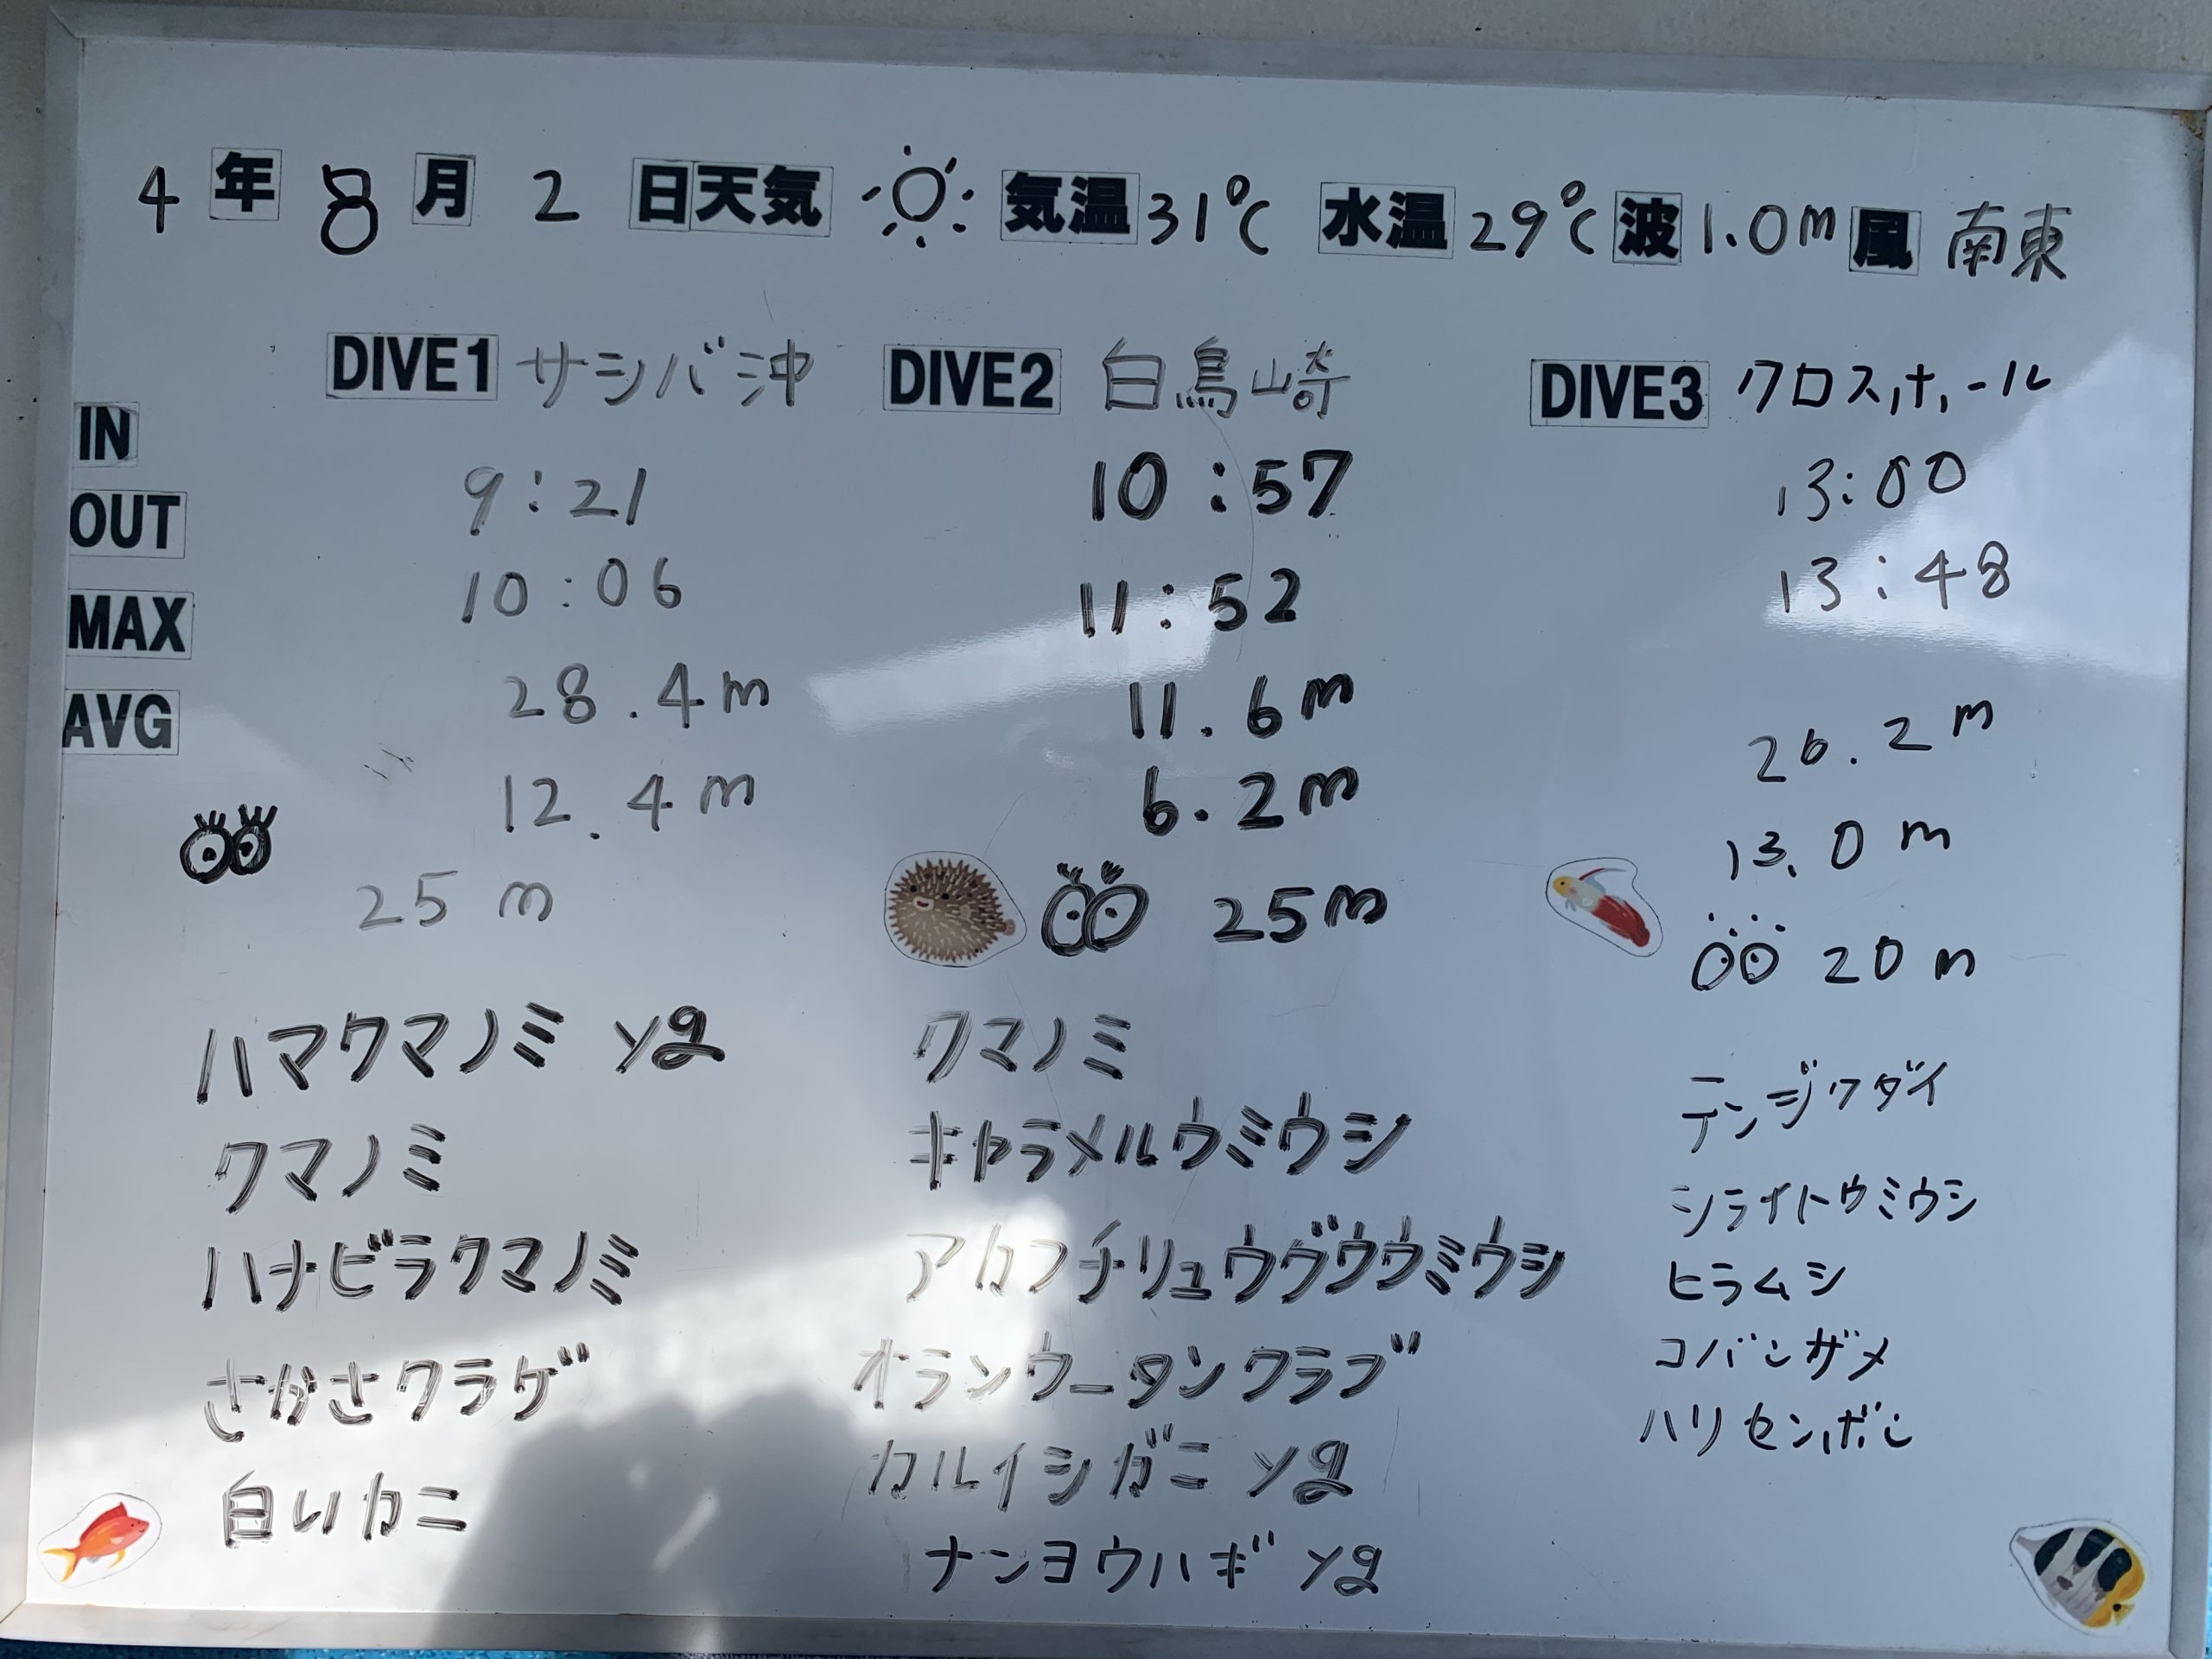 4年 8月 2日 天気 気温 31℃ 水温 29℃ 波 1.0m 風 南東
DIVE1 サシバ沖
DIVE2 白鳥崎
DIVE3 クロスホール
IN
OUT
MAX
AVG
9:21
10:06
28.4m
12.4m
25m
ハマクマノミ yg
クマノミ
ハナビラクマノミ
さかさクラゲ
白いカニ
10:57
11:52
11.6m
6.2m
25m
クマノミ
キャラメルウミウシ
アカフチリュウグウウミウシ
オランウータンクラブ
カルイシガニ yg
ナンヨウハギ yg
13:00
13:48
26.2m
13.0m
20m
テンジクダイ
シライトウミウシ
ヒラムシ
コバンザメ
ハリセンボン